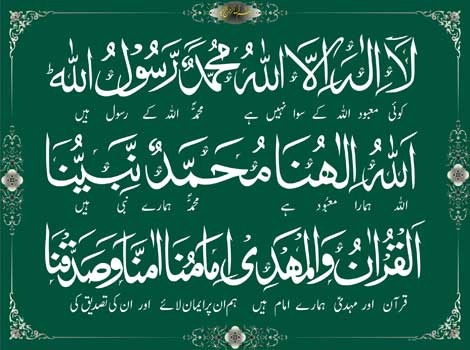 لَا اِلٰهَ اِلَّا اللهُ مُحَمَّدٌ رَّسُوْلُ اللهِ
کوئی معبود اللہ کے سوا نہیں ہے محمدؐ اللہ کے رسول ہیں
اَللهُ اِلٰهُنَا مُحَمَّدٌ نَّبِيُّنَا
اللہ ہمارا معبود ہے محمدؐ ہمارے نبی ہیں
اَلْقُرْاٰنُ وَالْمَهْدِیْ اِمَامُنَا اٰمَنَّا وَصَدَّقْنَا
قرآن اور مہدیؑ ہمارے امام ہیں ہم ان پر ایمان لائے اور ان کی تصدیق کی